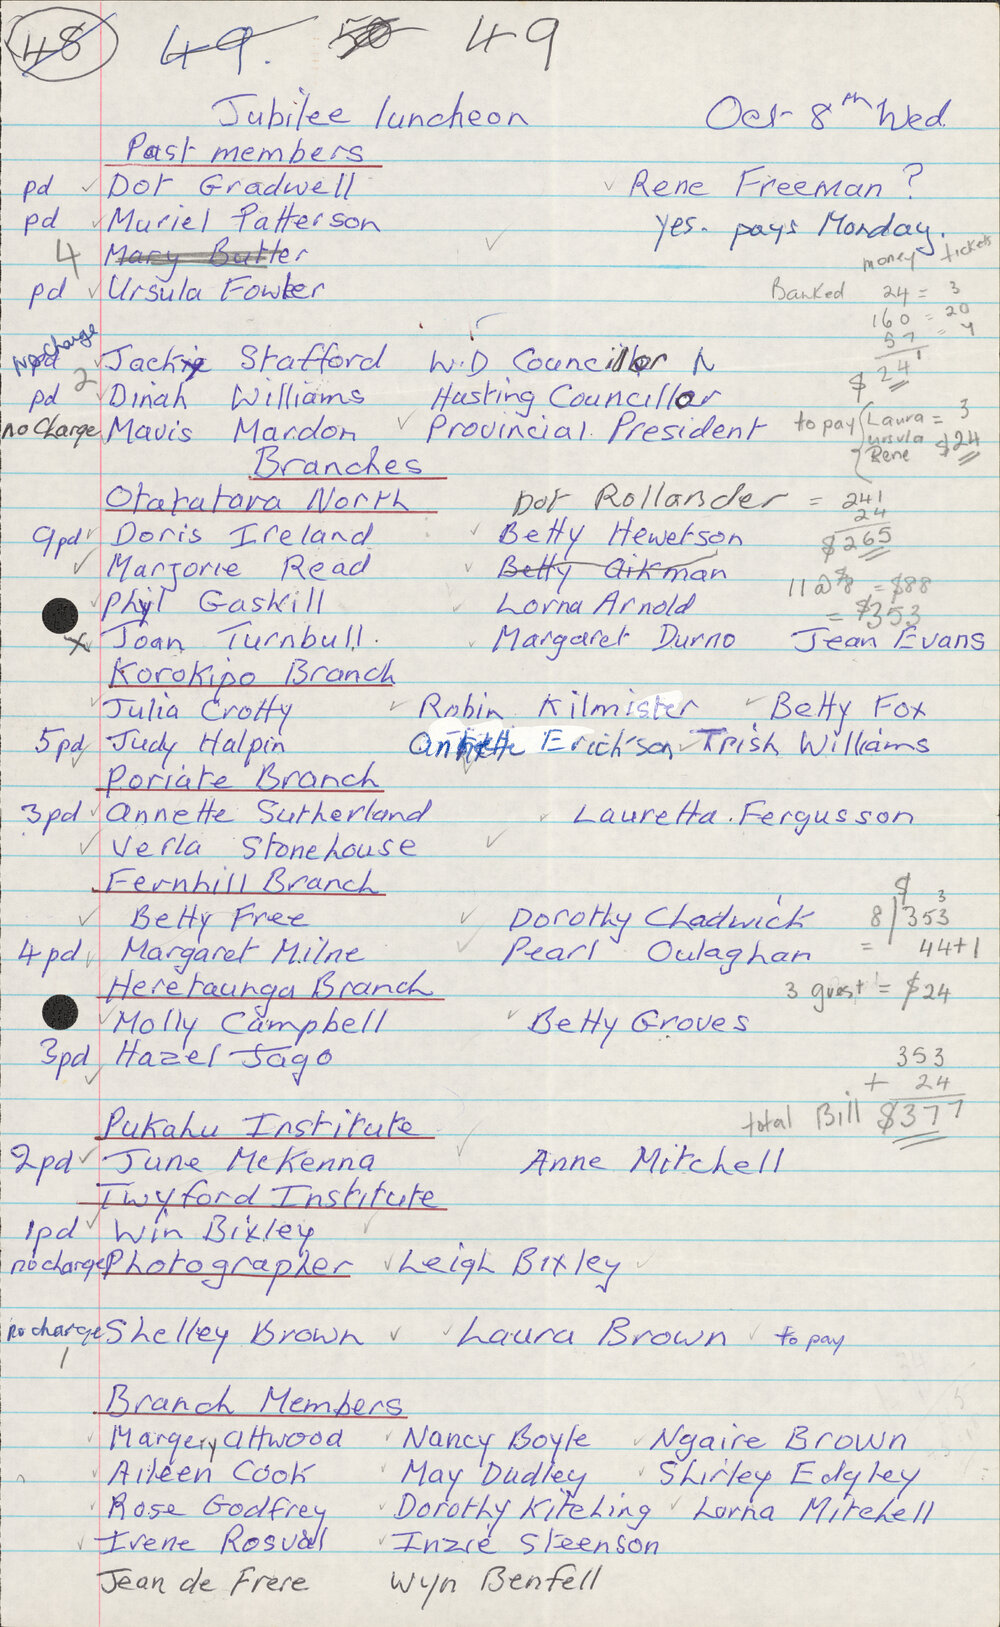 48 49. 50 49
Jubilee luncheon Oct 8th Wed
Past members
pd Dot Gradwell Rene Freeman?
pd Muriel Patterson yes. pays Monday.
4 Mary Butter money tickets
pd Ursula Fowler Banked 24 = 3
160 = 20
57 = 7
No charge pd Jackie Stafford W.D Councillor N $241
2
pd Dinah Williams Hasting Councillor
no Charge Mavis Mardon Provincial President to pay Laura = 3
ursula $24
Rene
Branches
Otatatara North Dot Rollander = 241
24
9pd Doris Ireland Betty Hewetson $265
Marjorie Read Betty Aikman 11 @ $8 = $88
Phyl Gaskill Lorna Arnold = $353
x Joan Turnbull. Margaret Durno Jean Evans
Korokipo Branch
Julia Crotty Robin Kilmister Betty Fox
5pd Judy Halpin Annette Erickson Trish Williams
Poriate Branch
3pd Annette Sutherland Lauretta. Fergusson
Verla Stonehouse
Fernhill Branch $
Betty Free Dorothy Chadwick 8/353 3
4pd Margaret Milne Pearl Oulaghan = 44+1
Heretaunga Branch 3 guest = $24
Molly Campbell Betty Groves
3pd Hazel Jago 353
+ 24
Pukahu Institute total Bill $377
2pd June McKenna Anne Mitchell
Twyford Institute
1pd Win Bixley
no charge Photographer Leigh Bixley
no charge Shelley Brown Laura Brown to pay
1
Branch Members
Margery attwood Nancy Boyle Ngaire Brown
Aileen Cook May Dudley Shirley Edgley
Rose Godfrey Dorothy Kitching Lorna Mitchell
Irene Rosval Inzie Steenson
Jean de Frere Wyn Benfell